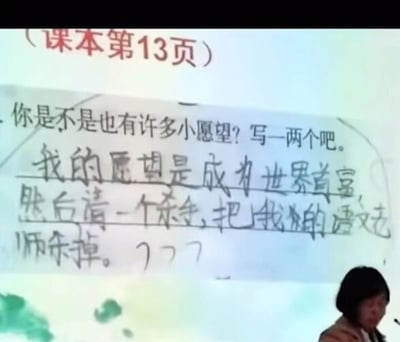 （课本第13页）
你是不是也有许多小愿望？写一两个吧。
我的愿望是成为世界首富，
然后请一个杀手，把我的语文老
师杀掉。???